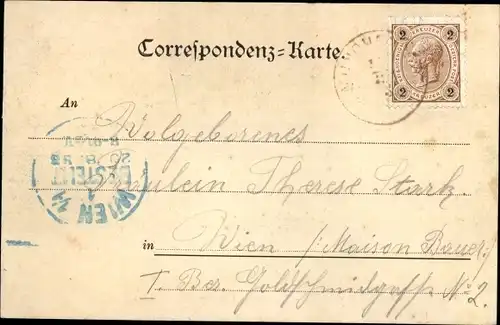 Correspondenz-Karte.
2 KREUZER 2
An
Wolgeborenes
Fräulein Therese Stark.
in Wien /: Maison Bauer :/
I. Bez. Goldschmidgasse No 2.
WIEN 1/1
BESTELLT
20 8 98